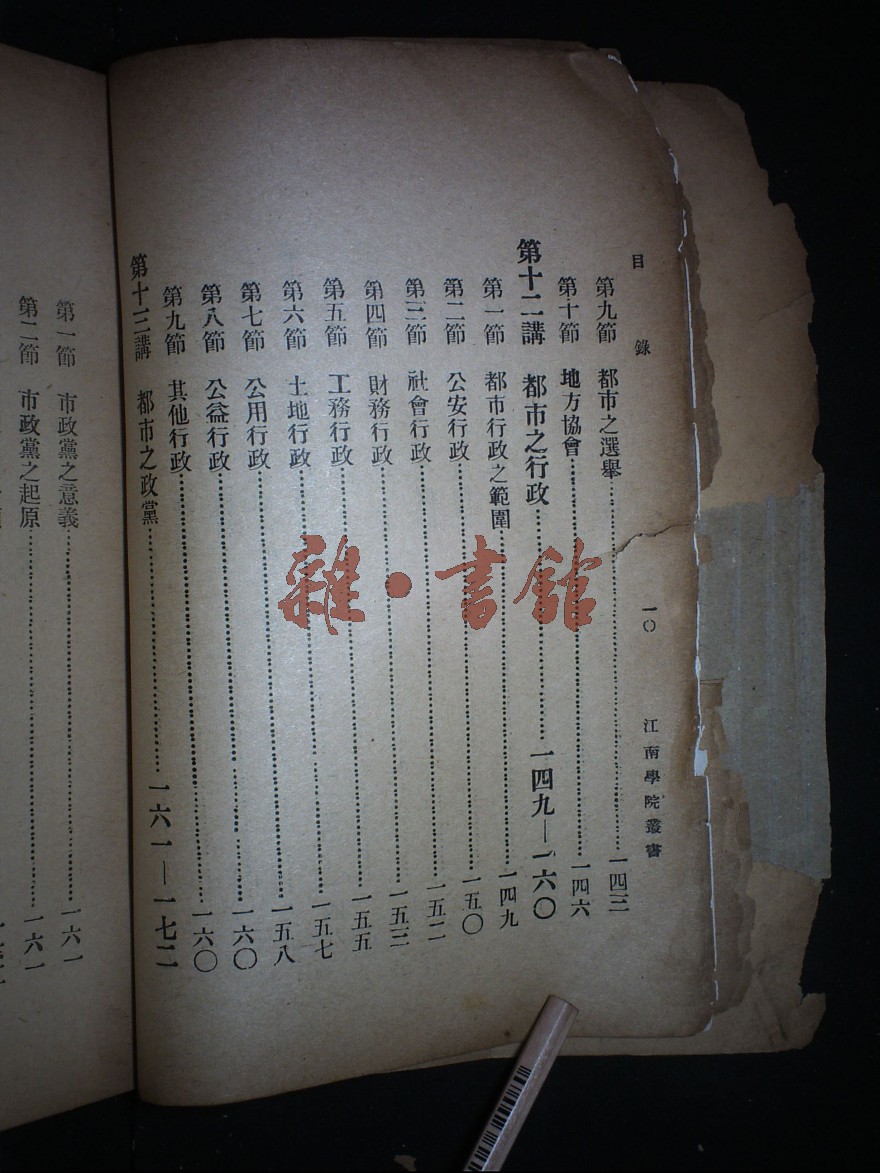 目錄
一〇
江南學院叢書
第九節 都市之選舉……一四三
第十節 地方協會……一四六
第十二講 都市之行政……一四九—一六〇
第一節 都市行政之範圍……一四九
第二節 公安行政……一五〇
第三節 社會行政……一五二
第四節 財務行政……一五三
第五節 工務行政……一五五
第六節 土地行政……一五七
第七節 公用行政……一五八
第八節 公益行政……一六〇
第九節 其他行政……一六〇
第十三講 都市之政黨……一六一—一七二
第一節 市政黨之意義……一六一
第二節 市政黨之起原……一六一
雜·書館